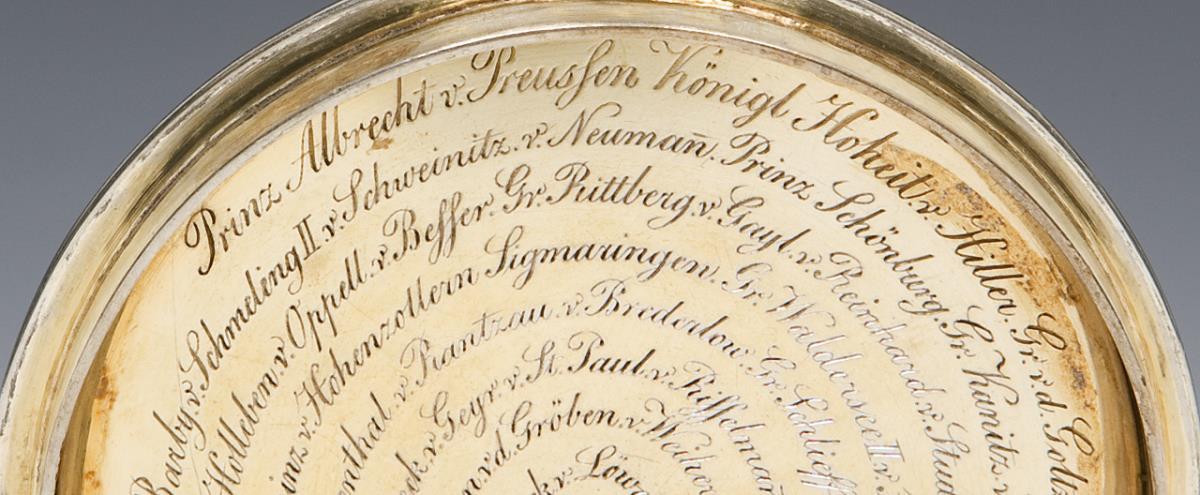 Prinz Albrecht v. Preussen Königl Hoheit v. Hiller. Gr. v. d. Goltz
Barby v. Schmeling II v. Schweinitz. v. Neumañ. Prinz Schönberg Gr. Kanitz v.
Holleben v. Oppell. v. Besser. Gr. Rittberg. v. Gayl. v. Reinhard v.
v. Hohenzollern Sigmaringen. Gr. Waldersee II v.
v. Rantzau. v. Brederlow. Gr. Schlieff
v. Geyr. v. St. Paul. v.
v. d. Gröben. v.
v.